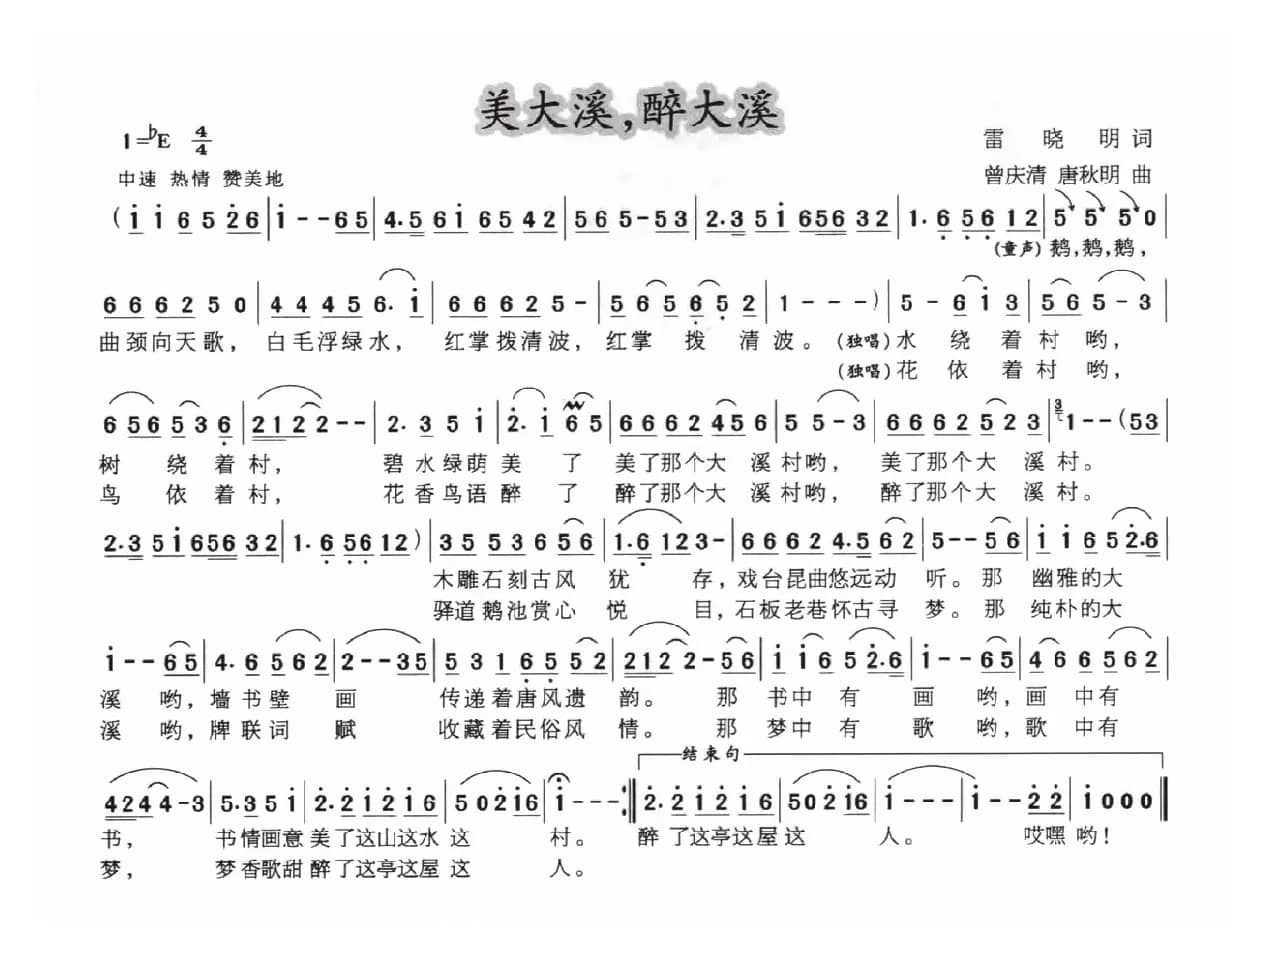 美大溪，醉大溪
1=♭E 4/4
雷 晓 明 词
中速 热情 赞美地
曾庆清 唐秋明 曲
( i i 6 5 2̇6 | i - - 65 | 4.5 6i 65 42 | 56 5-53 | 2.3 5i 656 32 | 1. 6 56 12 | 5 5 50 |
(童声) 鹅,鹅,鹅,
666250 | 44456. i | 66625- | 56 5652 | 1---) | 5-6i3 | 565-3 |
曲颈向天歌， 白毛浮绿水， 红掌拨清波，红掌 拨 清 波。 (独唱) 水 绕 着 村 哟，
(独唱) 花 依 着 村 哟，
6 56 53 6 | 2122-- | 2. 3 5 i | 2̇. i 65 | 6662 456 | 55-3 | 6662 523 | 31--(53 |
树 绕 着 村， 碧 水 绿 荫 美 了 美了那个大 溪村哟， 美了那个大 溪 村。
鸟 依 着 村， 花 香 鸟 语 醉 了 醉了那个大 溪村哟， 醉了那个大 溪 村。
2.3 5i 656 32 | 1. 6 56 12) | 35 53 6 56 | 1.6 12 3- | 6662 4.562 | 5--56 | i i 65 2̇.6 |
木雕石刻古风 犹 存，戏台昆曲悠远动 听。那 幽雅的大
驿道鹅池赏心 悦 目，石板老巷怀古寻 梦。那 纯朴的大
i--65 | 4. 6 562 | 2--35 | 531 65 52 | 2122-56 | i i6 5 2̇.6 | i--65 | 46 6 562 |
溪 哟，墙 书 壁 画 传递着唐风遗 韵。 那 书中 有 画 哟，画 中有
溪 哟，牌 联 词 赋 收藏着民俗风 情。 那 梦中 有 歌 哟，歌 中有
结束句
4244-3 | 5.35i | 2̇.2̇i2̇i6 | 502̇i6 | i---:‖ 2̇.2̇i2̇i6 | 502̇i6 | i--- | i--2̇2̇ | i000 ‖
书， 书情画意 美了这山这水 这 村。 醉 了这亭这屋 这 人。 哎嘿 哟！
梦， 梦香歌甜 醉了这亭这屋 这 人。